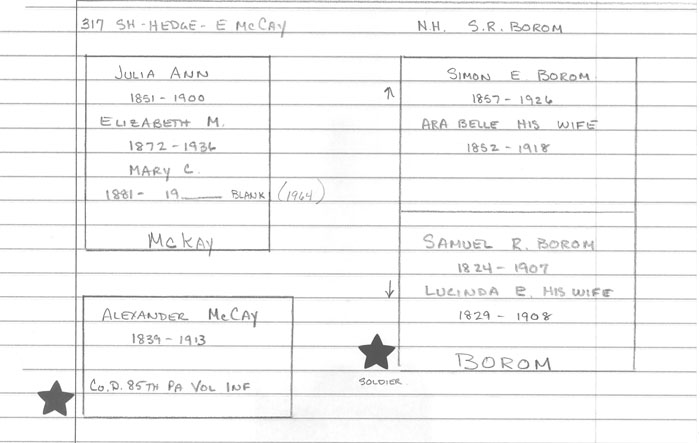 317 SH-HEDGE- E McCAY
N.H. S.R. BOROM
JULIA ANN
1851-1900
ELIZABETH M.
1872-1936
MARY C.
1881- 19____ BLANK (1964)
McKAY
ALEXANDER McCAY
1839-1913
Co. D. 85TH PA VOL INF
↑
SIMON E BOROM
1857-1926
ARA BELLE HIS WIFE
1852-1918
SAMUEL R. BOROM
1824-1907
↓
LUCINDA E. HIS WIFE
1829-1908
BOROM
SOLDIER